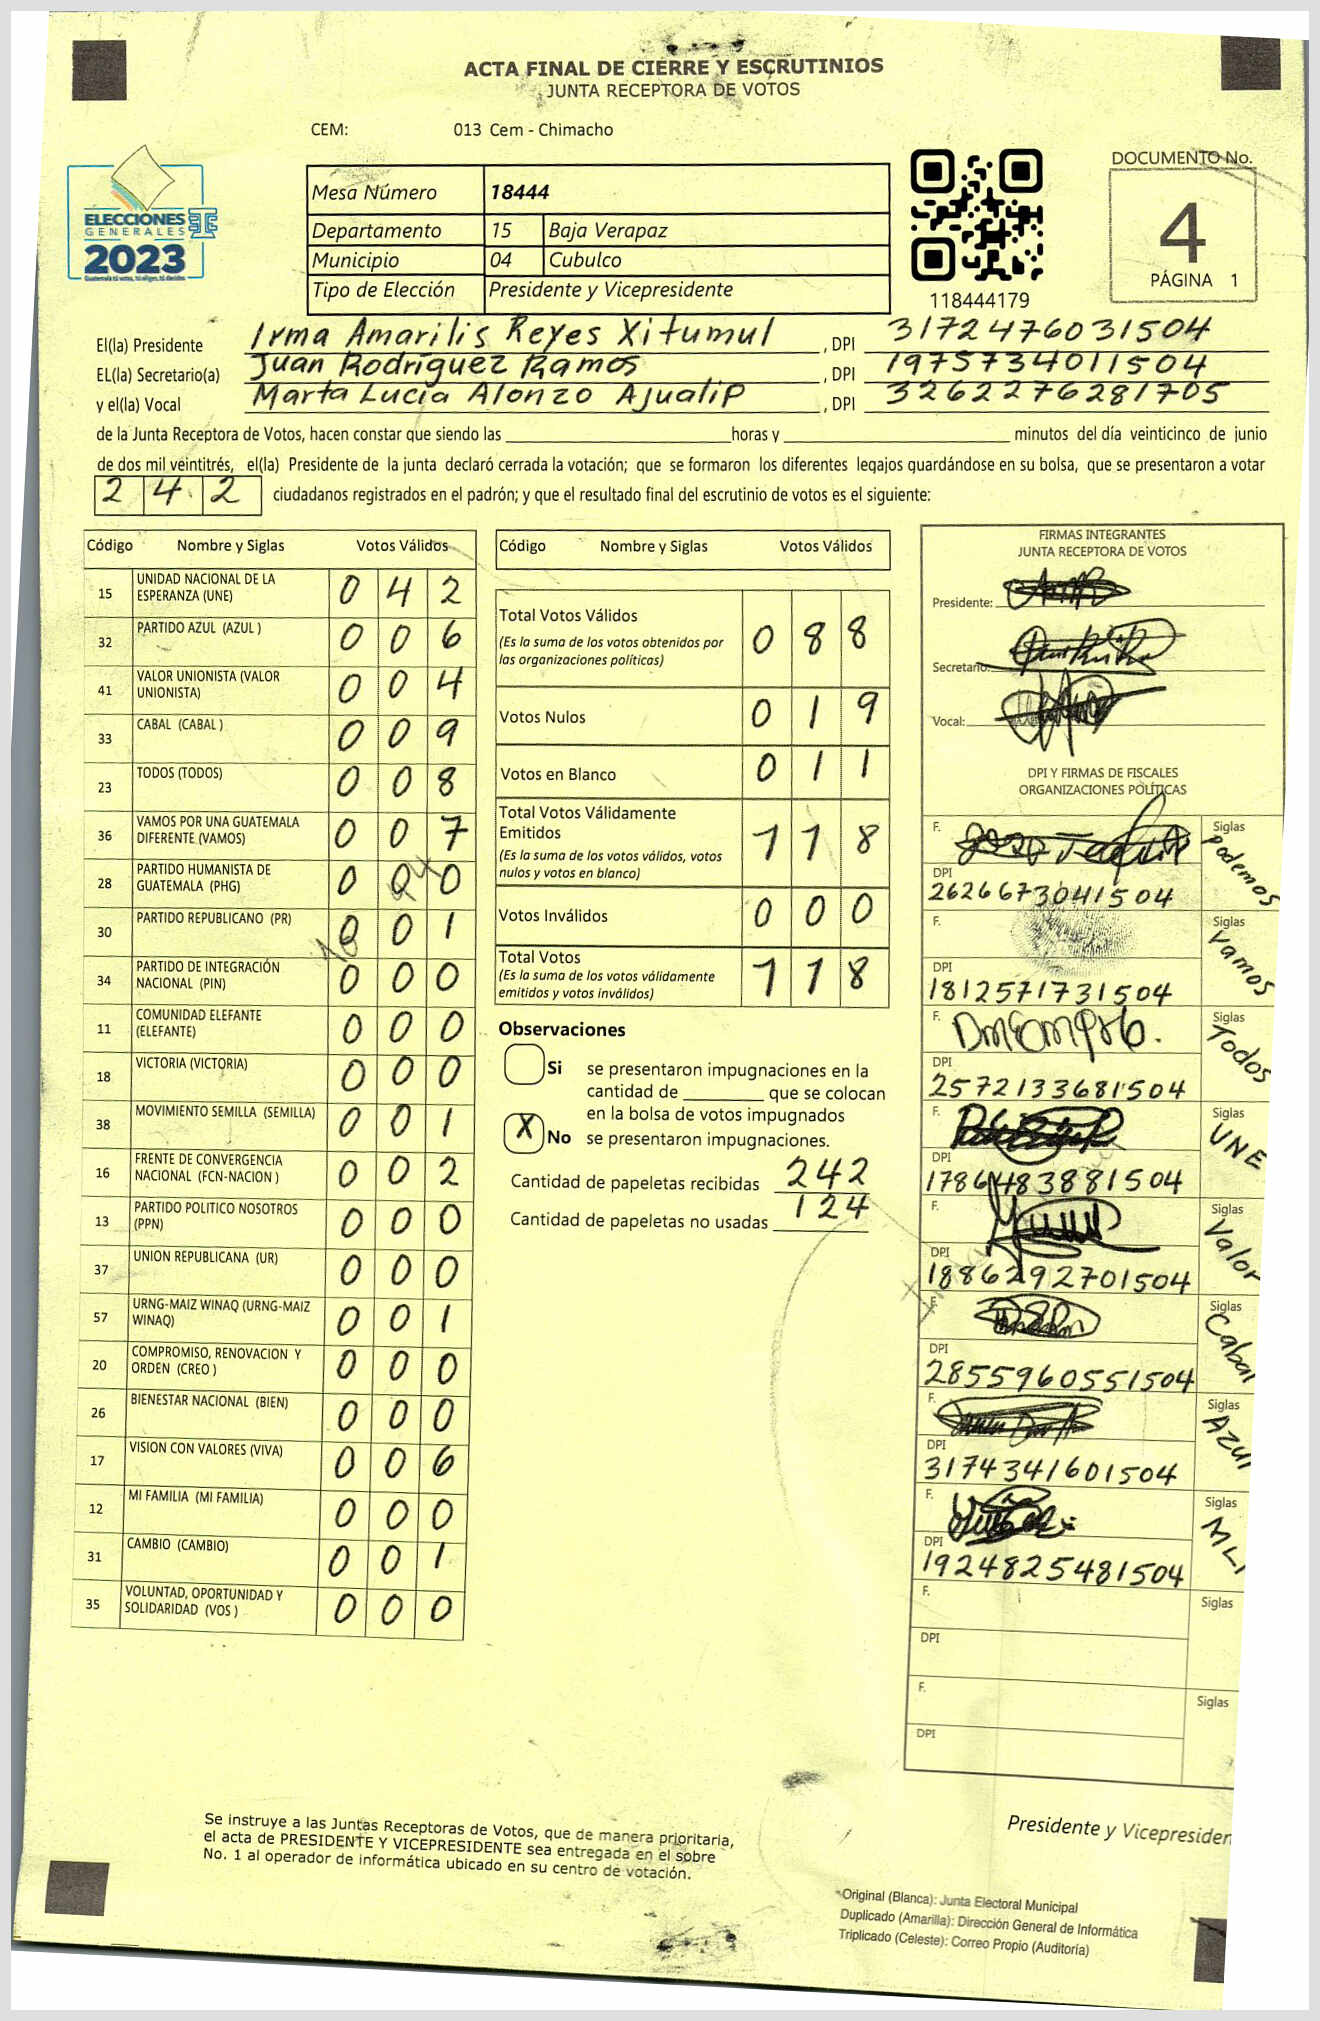 ACTA FINAL DE CIERRE Y ESCRUTINIOS
JUNTA RECEPTORA DE VOTOS
CEM: 013 Cem - Chimacho
ELECCIONES
GENERALES
2023
Guatemala tú votas, tú eliges, tú decides
Mesa Número 18444
Departamento 15 Baja Verapaz
Municipio 04 Cubulco
Tipo de Elección Presidente y Vicepresidente
118444179
DOCUMENTO No.
4
PÁGINA 1
El(la) Presidente Irma Amarilis Reyes Xitumul , DPI 3172476031504
EL(la) Secretario(a) Juan Rodríguez Ramos , DPI 1975734011504
y el(la) Vocal Marta Lucía Alonzo Ajualip , DPI 3262276281705
de la Junta Receptora de Votos, hacen constar que siendo las horas y minutos del día veinticinco de junio
de dos mil veintitrés, el(la) Presidente de la junta declaró cerrada la votación; que se formaron los diferentes legajos guardándose en su bolsa, que se presentaron a votar
242 ciudadanos registrados en el padrón; y que el resultado final del escrutinio de votos es el siguiente:
Código Nombre y Siglas Votos Válidos
15 UNIDAD NACIONAL DE LA ESPERANZA (UNE) 0 4 2
32 PARTIDO AZUL (AZUL ) 0 0 6
41 VALOR UNIONISTA (VALOR UNIONISTA) 0 0 4
33 CABAL (CABAL ) 0 0 9
23 TODOS (TODOS) 0 0 8
36 VAMOS POR UNA GUATEMALA DIFERENTE (VAMOS) 0 0 7
28 PARTIDO HUMANISTA DE GUATEMALA (PHG) 0 0 0
30 PARTIDO REPUBLICANO (PR) 0 0 1
34 PARTIDO DE INTEGRACIÓN NACIONAL (PIN) 0 0 0
11 COMUNIDAD ELEFANTE (ELEFANTE) 0 0 0
18 VICTORIA (VICTORIA) 0 0 0
38 MOVIMIENTO SEMILLA (SEMILLA) 0 0 1
16 FRENTE DE CONVERGENCIA NACIONAL (FCN-NACION ) 0 0 2
13 PARTIDO POLITICO NOSOTROS (PPN) 0 0 0
37 UNION REPUBLICANA (UR) 0 0 0
57 URNG-MAIZ WINAQ (URNG-MAIZ WINAQ) 0 0 1
20 COMPROMISO, RENOVACION Y ORDEN (CREO ) 0 0 0
26 BIENESTAR NACIONAL (BIEN) 0 0 0
17 VISION CON VALORES (VIVA) 0 0 6
12 MI FAMILIA (MI FAMILIA) 0 0 0
31 CAMBIO (CAMBIO) 0 0 1
35 VOLUNTAD, OPORTUNIDAD Y SOLIDARIDAD (VOS ) 0 0 0
Código Nombre y Siglas Votos Válidos
Total Votos Válidos 0 8 8
(Es la suma de los votos obtenidos por
las organizaciones políticas)
Votos Nulos 0 1 9
Votos en Blanco 0 1 1
Total Votos Válidamente
Emitidos 1 1 8
(Es la suma de los votos válidos, votos
nulos y votos en blanco)
Votos Inválidos 0 0 0
Total Votos 1 1 8
(Es la suma de los votos válidamente
emitidos y votos inválidos)
Observaciones
Si se presentaron impugnaciones en la
cantidad de que se colocan
en la bolsa de votos impugnados
X No se presentaron impugnaciones.
Cantidad de papeletas recibidas 242
Cantidad de papeletas no usadas 124
FIRMAS INTEGRANTES
JUNTA RECEPTORA DE VOTOS
Presidente:
Secretario:
Vocal:
DPI Y FIRMAS DE FISCALES
ORGANIZACIONES POLÍTICAS
F. Siglas podemos
DPI 2626673041504
F. Siglas Vamos
DPI 1812571731504
F. Siglas Todos
DPI 2572133681504
F. Siglas UNE
DPI 1786483881504
F. Siglas Valor
DPI 1886292701504
F. Siglas Cabal
DPI 2855960551504
F. Siglas AZUL
DPI 3174341601504
F. Siglas MLI
DPI 1924825481504
F. Siglas
DPI
F. Siglas
DPI
Se instruye a las Juntas Receptoras de Votos, que de manera prioritaria,
el acta de PRESIDENTE Y VICEPRESIDENTE sea entregada en el sobre
No. 1 al operador de informática ubicado en su centro de votación.
Presidente y Vicepresiden
Original (Blanca): Junta Electoral Municipal
Duplicado (Amarilla): Dirección General de Informática
Triplicado (Celeste): Correo Propio (Auditoría)